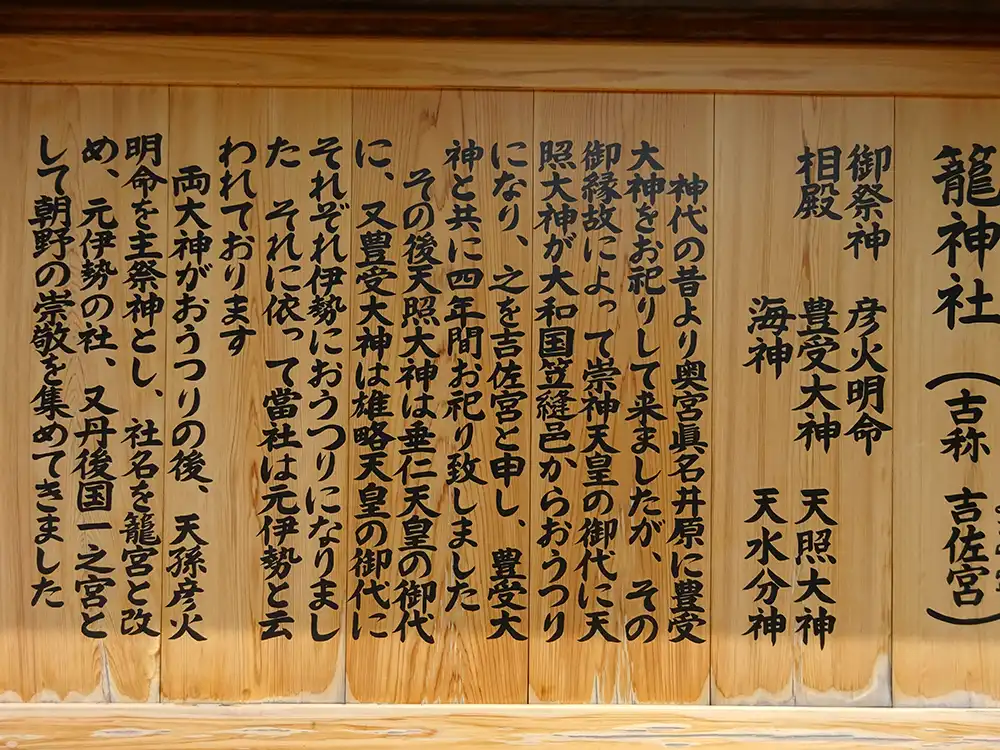 籠神社(古称 吉佐宮)
御祭神 彦火明命
相殿 豊受大神 天照大神
海神 天水分神
神代の昔より奥宮眞名井原に豊受
大神をお祀りして来ましたが、その
御縁故によって崇神天皇の御代に天
照大神が大和国笠縫邑からおうつり
になり、之を吉佐宮と申し、豊受大
神と共に四年間お祀り致しました
その後天照大神は垂仁天皇の御代
に、又豊受大神は雄略天皇の御代に
それぞれ伊勢におうつりになりまし
た それに依って當社は元伊勢と云
われております
両大神がおうつりの後、天孫彦火
明命を主祭神とし、社名を籠宮と改
め、元伊勢の社、又丹後国一之宮と
して朝野の崇敬を集めてきました